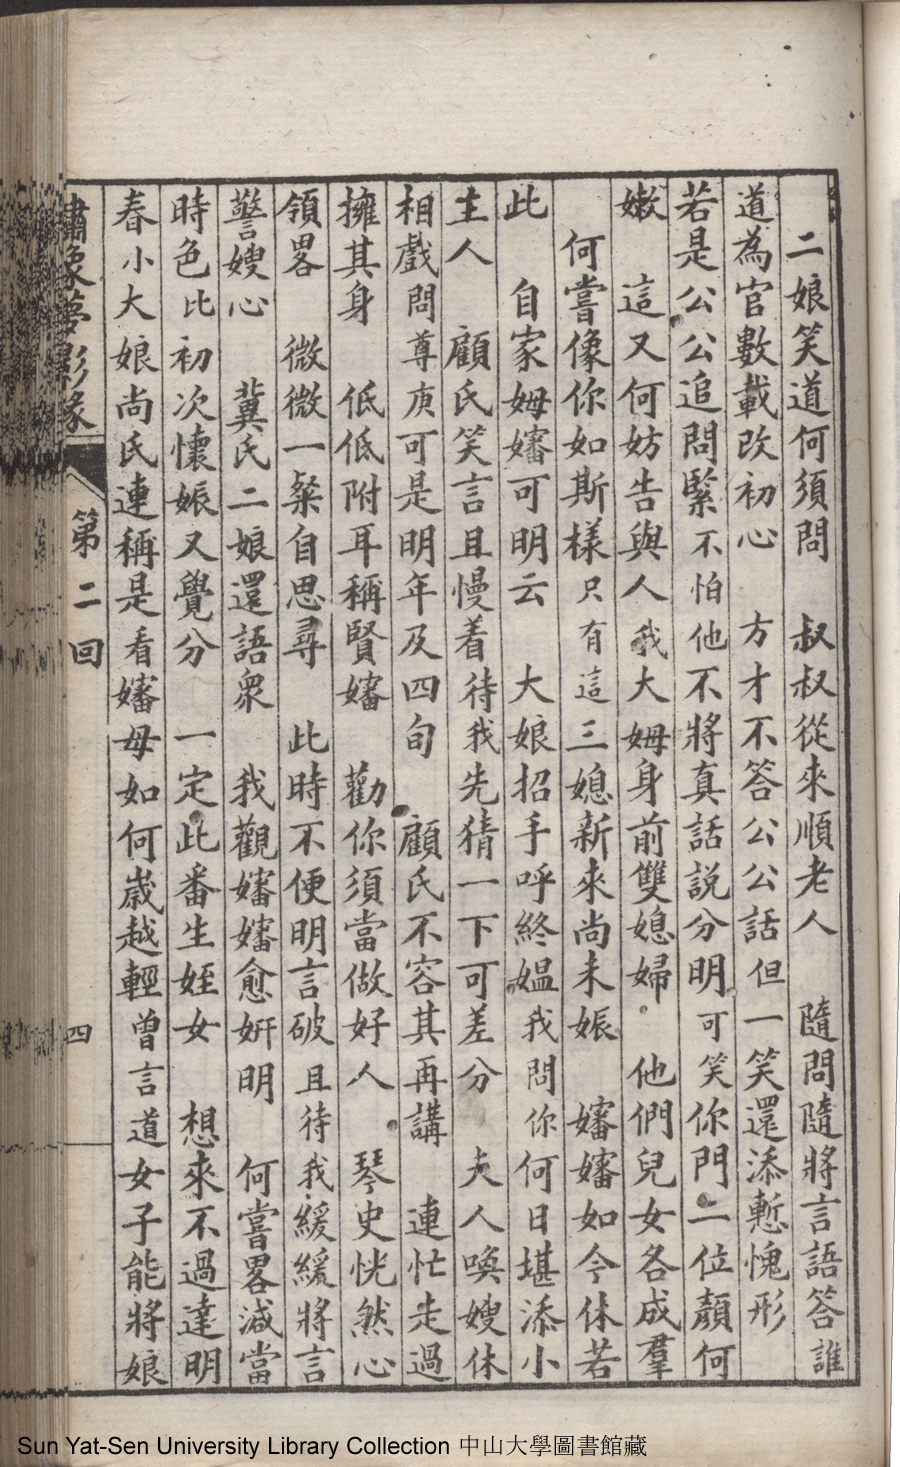 二娘笑道何須問　叔叔從來順老人　隨問隨將言語答誰
道為官數載改初心　方才不答公公話但一笑還添慙愧形
若是公公追問緊不怕他不將真話説分明可笑你門二位顏何
嫩　這又何妨告與人我大姆身前雙媳婦　他們兒女各成羣
何嘗像你如斯樣只有這三媳新來尚未娠　嬸嬸如今休若
此　自家姆嬸可明云　大娘招手呼終媼我問你何日堪添小
主人　顧氏笑言且慢着待我先猜一下可差分　夫人喚嫂休
相戲問尊庚可是明年及四旬　顧氏不容其再講　連忙走過
擁其身　低低附耳稱賢嬸　勸你須當做好人　琴史恍然心
領畧　微微一粲自思尋　此時不便明言破且待我緩緩將言
警嫂心　冀氏二娘還語衆　我觀嬸嬸愈妍明　何嘗畧減當
時色比初次懷娠又覺分　一定此番生姪女　想來不過達明
春小大娘尚氏連稱是看嬸母如何嵗越輕曾言道女子能將娘
繡像夢影緣　第二回　四
Sun Yat-Sen University Library Collection 中山大學圖書館藏